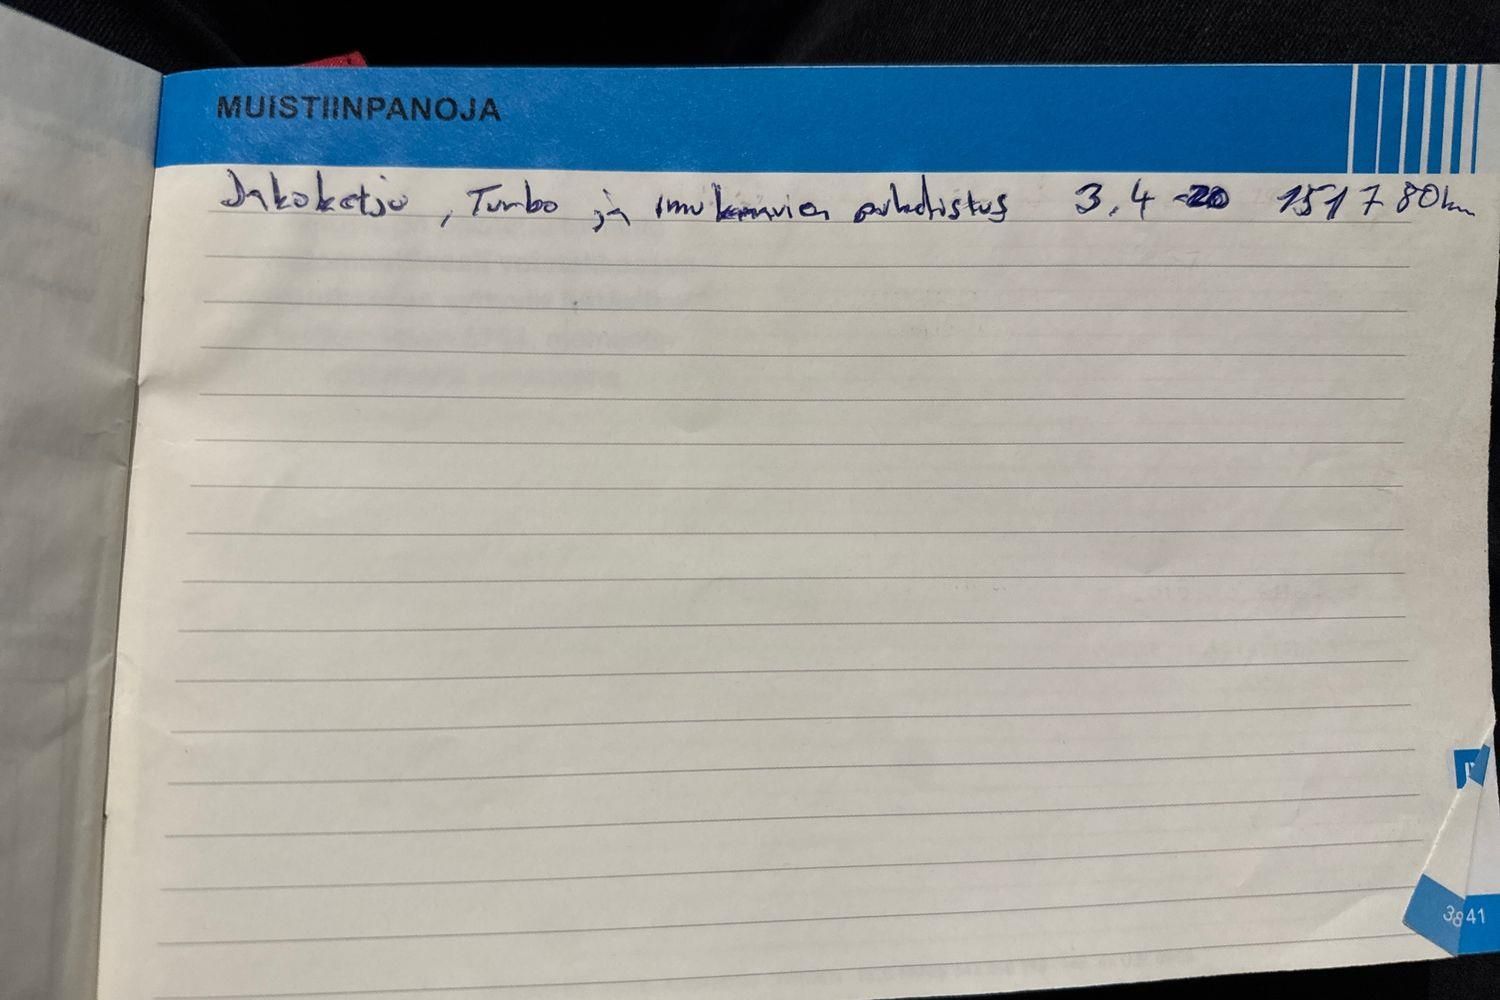 MUISTIINPANOJA
Jakoketju, Turbo ja imukanavien puhdistus 3,4 -20 151780km
38 41